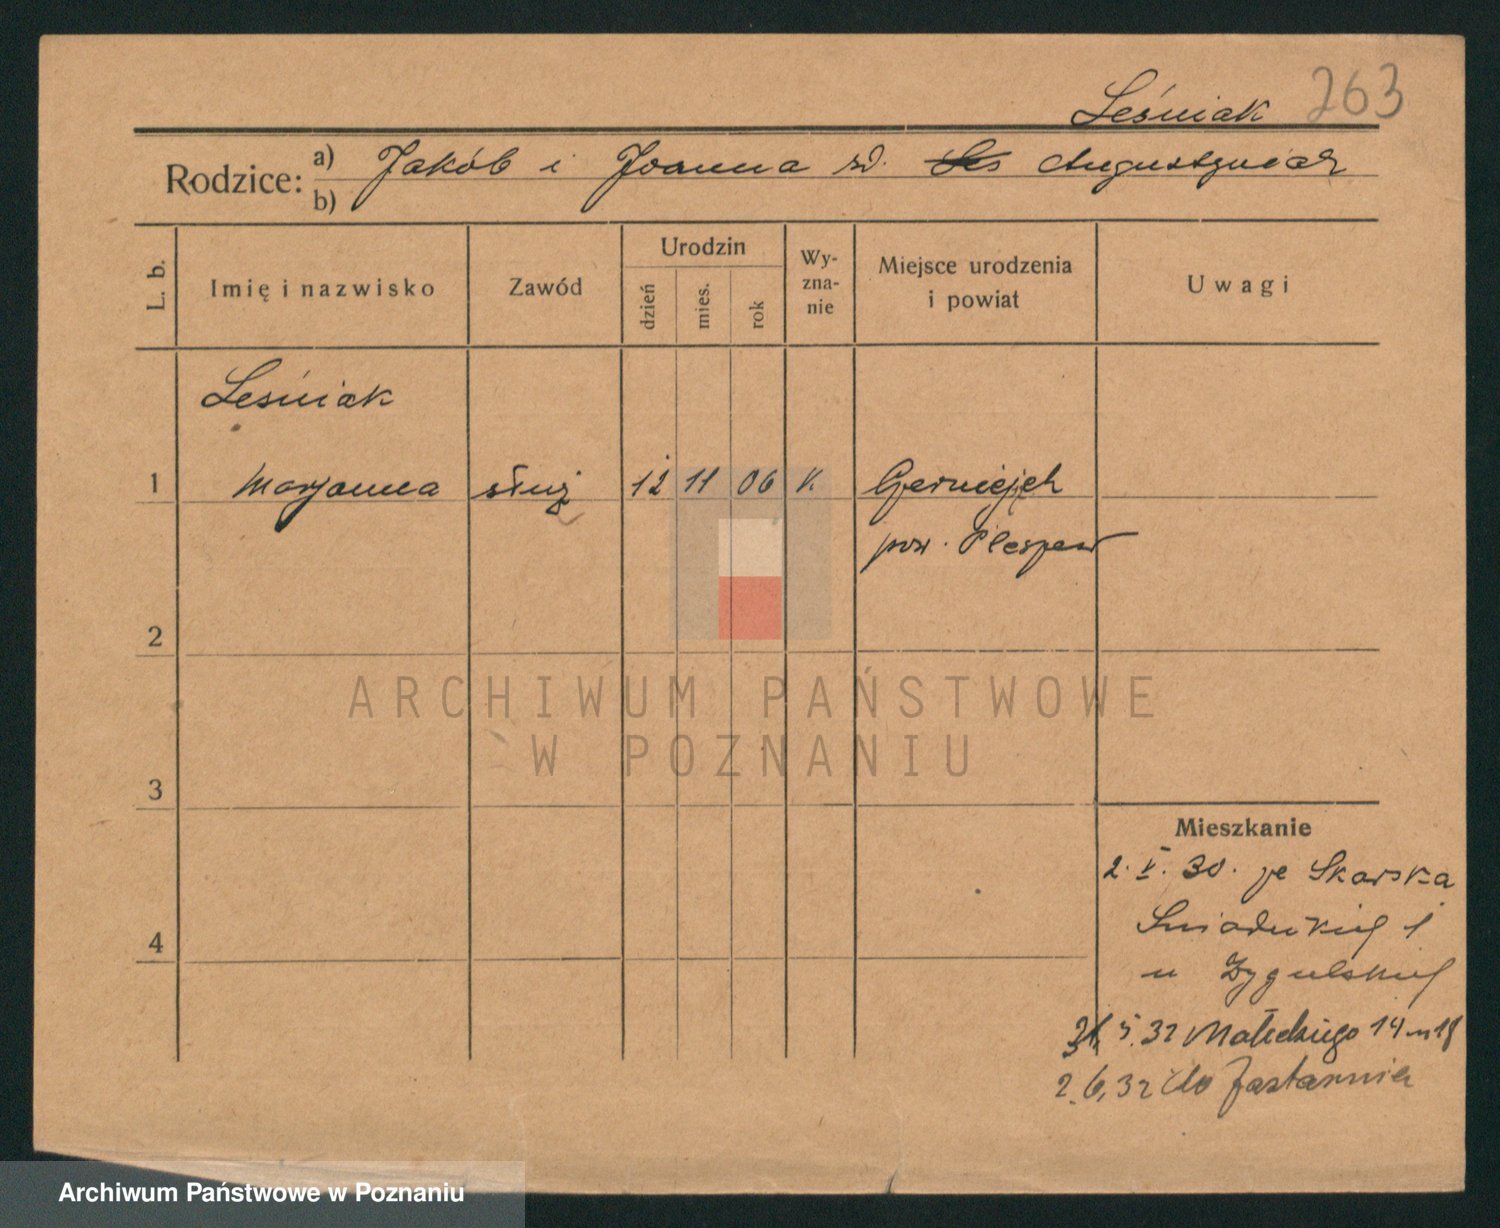 Leśniak 263
Rodzice: a) Jakób i Joanna zd. Augustyniak
b)
L. b.
Imię i nazwisko
Zawód
Urodzin
dzień
mies.
rok
Wy-
zna-
nie
Miejsce urodzenia
i powiat
Uwagi
Leśniak
1 Marjanna służ 12 11 06 k.
pow. Pleszew
2
ARCHIWUM PAŃSTWOWE
W POZNANIU
3
Mieszkanie
2. V. 30. ze Skarska
Śniadeckiej 1
u Zygulskiej
4
5. 32 Małeckiego 14 m 18
2. 6. 32 do
Archiwum Państwowe w Poznaniu